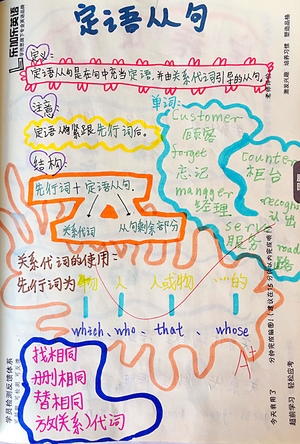 定语从句
乐加乐英语
定义:
定语从句是在句中充当定语,并由关系代词引导的从句。
注意:
定语从句紧跟先行词后。
结构:
先行词+定语从句.
关系代词 从句剩余部分
单词:
Customer
顾客
forget
忘记
manager
经理
serv
服务
Counter
柜台
recogn
认出
road
路
关系代词的使用:
先行词为 物 人 人或物 ……的
which、who、that、whose
A+
找相同
删相同
替相同
放(关系)代词
学员检测反馈体系
激发兴趣 培养习惯 塑造品格
超前学习 轻松应考